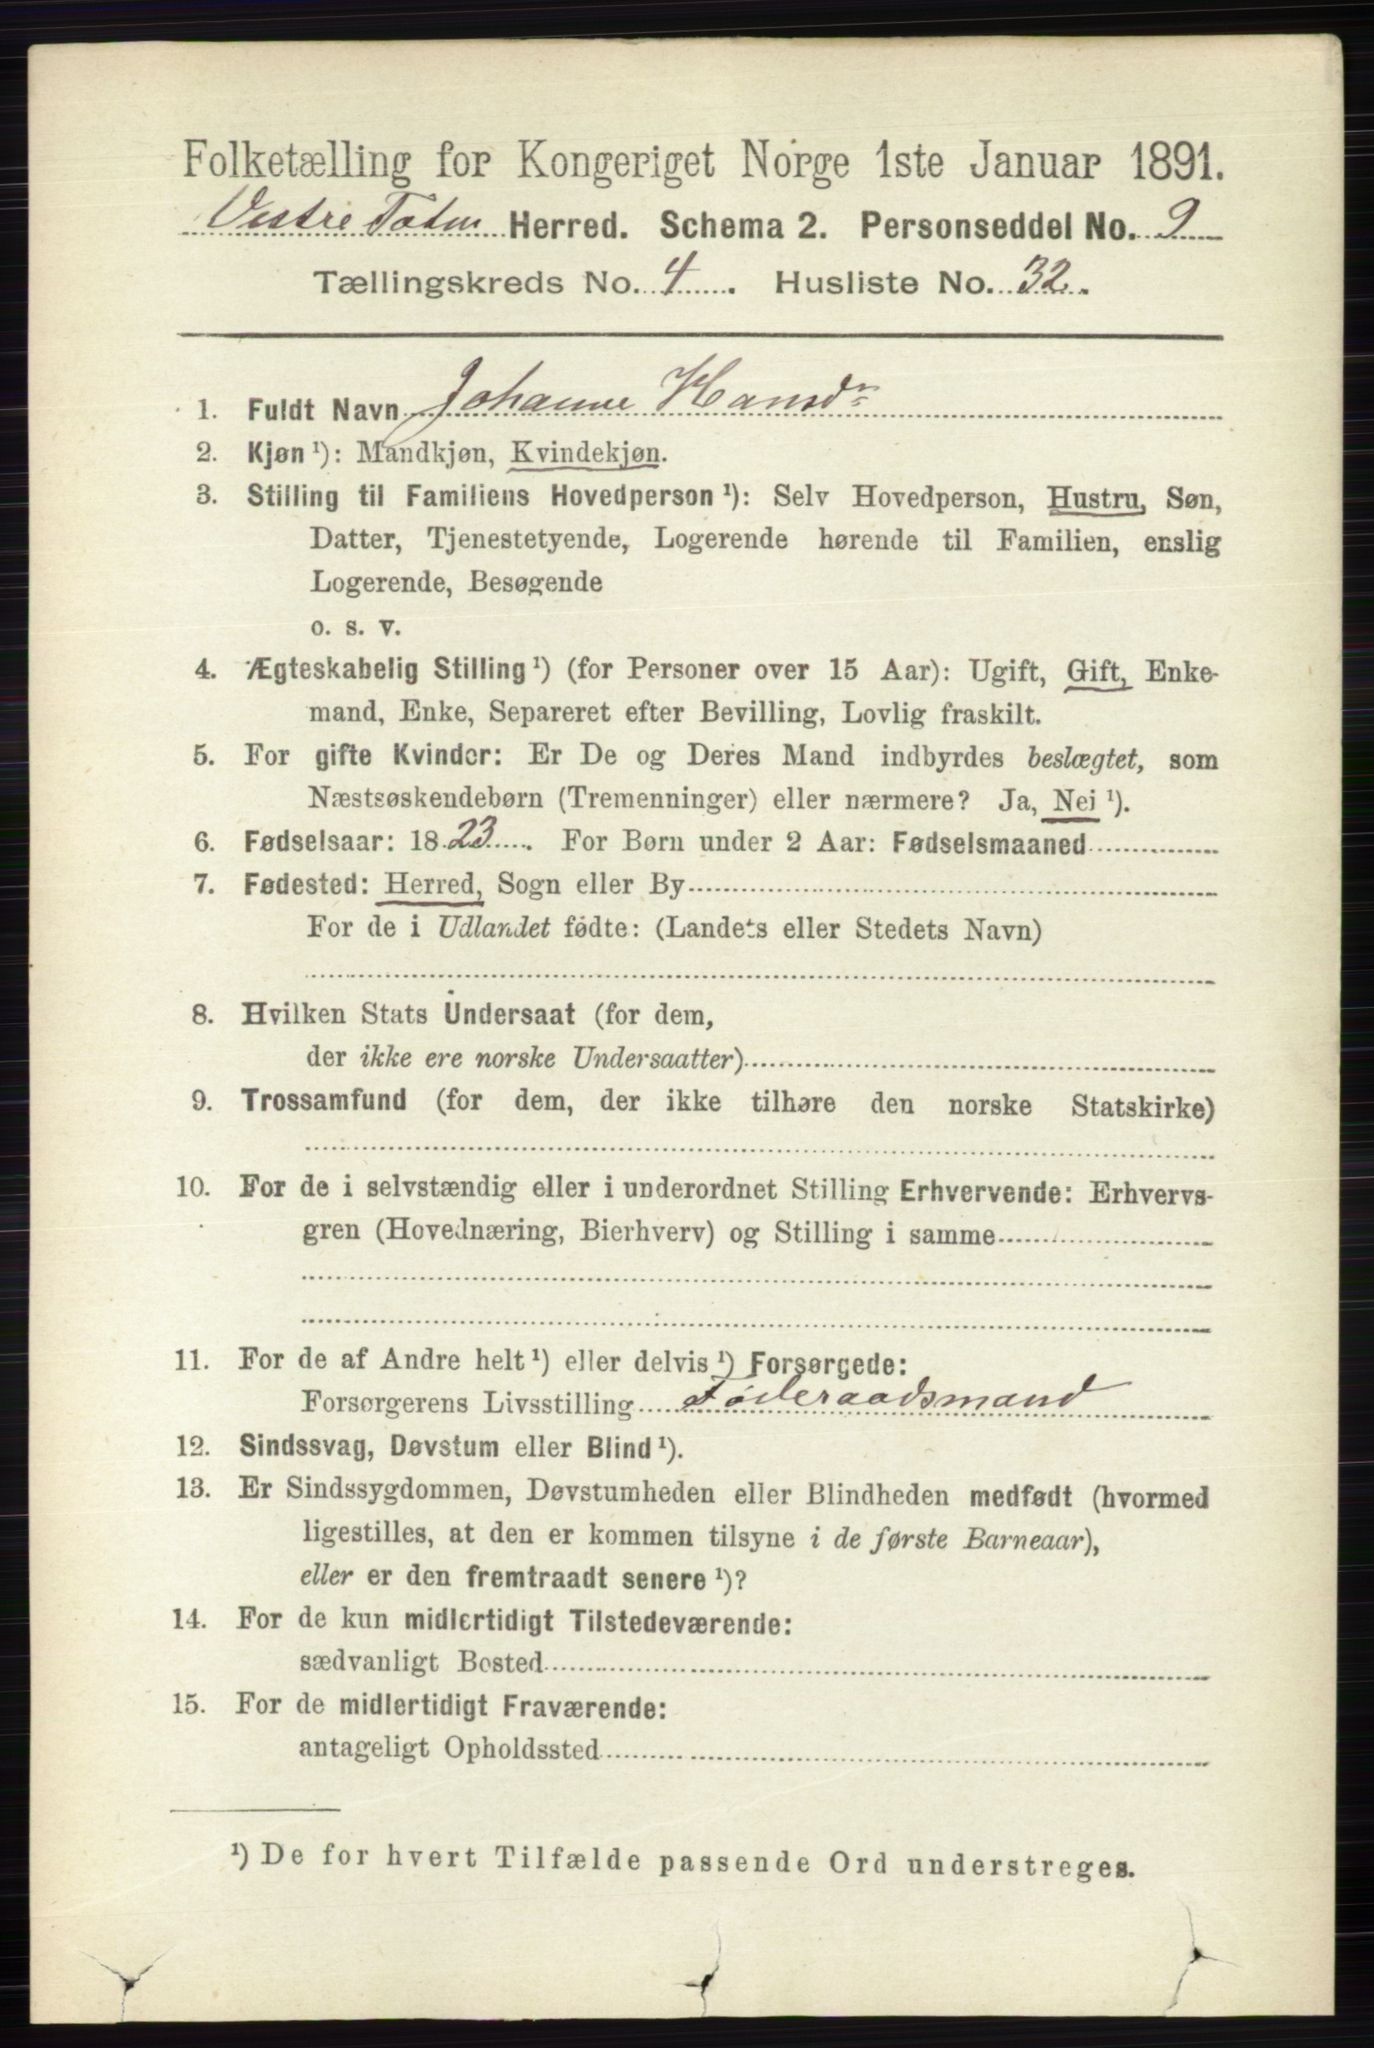 Folketælling for Kongeriget Norge 1ste Januar 1891.
Vestre Toten Herred. Schema 2. Personseddel No. 9
Tællingskreds No. 4. Husliste No. 32.
1. Fuldt Navn Johanne Hansdr
2. Kjøn ¹): Mandkjøn, Kvindekjøn.
3. Stilling til Familiens Hovedperson ¹): Selv Hovedperson, Hustru, Søn,
Datter, Tjenestetyende, Logerende hørende til Familien, enslig
Logerende, Besøgende
o. s. v.
4. Ægteskabelig Stilling ¹) (for Personer over 15 Aar): Ugift, Gift, Enke-
mand, Enke, Separeret efter Bevilling, Lovlig fraskilt.
5. For gifte Kvinder: Er De og Deres Mand indbyrdes beslægtet, som
Næstsøskendebørn (Tremenninger) eller nærmere? Ja, Nei ¹).
6. Fødselsaar: 1823. For Børn under 2 Aar: Fødselsmaaned
7. Fødested: Herred, Sogn eller By
For de i Udlandet fødte: (Landets eller Stedets Navn)
8. Hvilken Stats Undersaat (for dem,
der ikke ere norske Undersaatter)
9. Trossamfund (for dem, der ikke tilhøre den norske Statskirke)
10. For de i selvstændig eller i underordnet Stilling Erhvervende: Erhvervs-
gren (Hovednæring, Bierhverv) og Stilling i samme
11. For de af Andre helt ¹) eller delvis ¹) Forsørgede:
Forsørgerens Livsstilling Føderaadsmand
12. Sindssvag, Døvstum eller Blind ¹).
13. Er Sindssygdommen, Døvstumheden eller Blindheden medfødt (hvormed
ligestilles, at den er kommen tilsyne i de første Barneaar),
eller er den fremtraadt senere ¹)?
14. For de kun midlertidigt Tilstedeværende:
sædvanligt Bosted
15. For de midlertidigt Fraværende:
antageligt Opholdssted
¹) De for hvert Tilfælde passende Ord understreges.